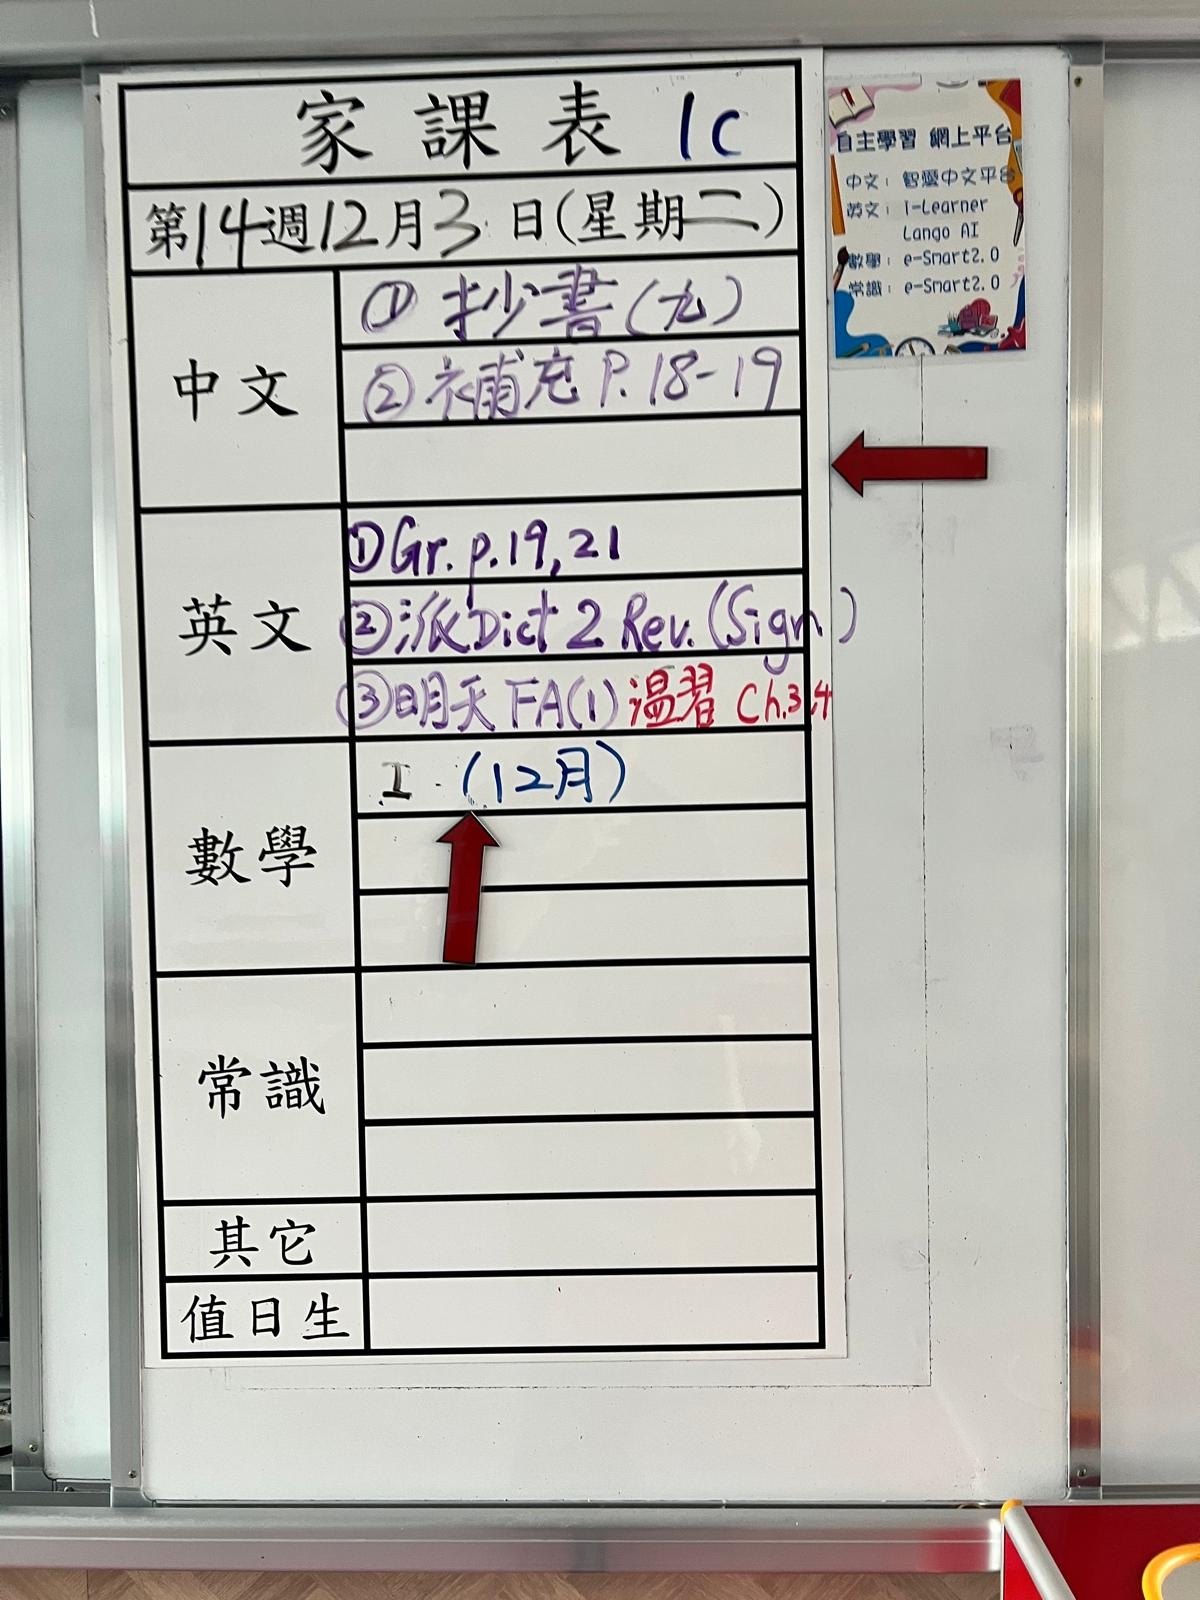 家課表 1C
第14週12月3日(星期二)
中文
① 抄書(九)
② 補充 P.18-19
英文
① Gr. p.19, 21
② 派 Dict 2 Rev. (Sign)
③ 明天 FA(1) 温習 Ch.3,4
數學
工 (12月)
常識
其它
值日生
自主學習 網上平台
中文: 智愛中文平台
英文: i-Learner
Lango AI
數學: e-Smart2.0
常識: e-Smart2.0